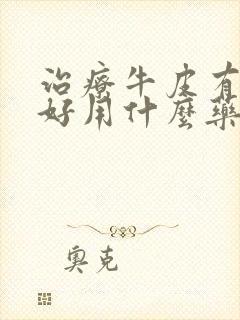 治療牛皮有
好用什麼藥
奧克